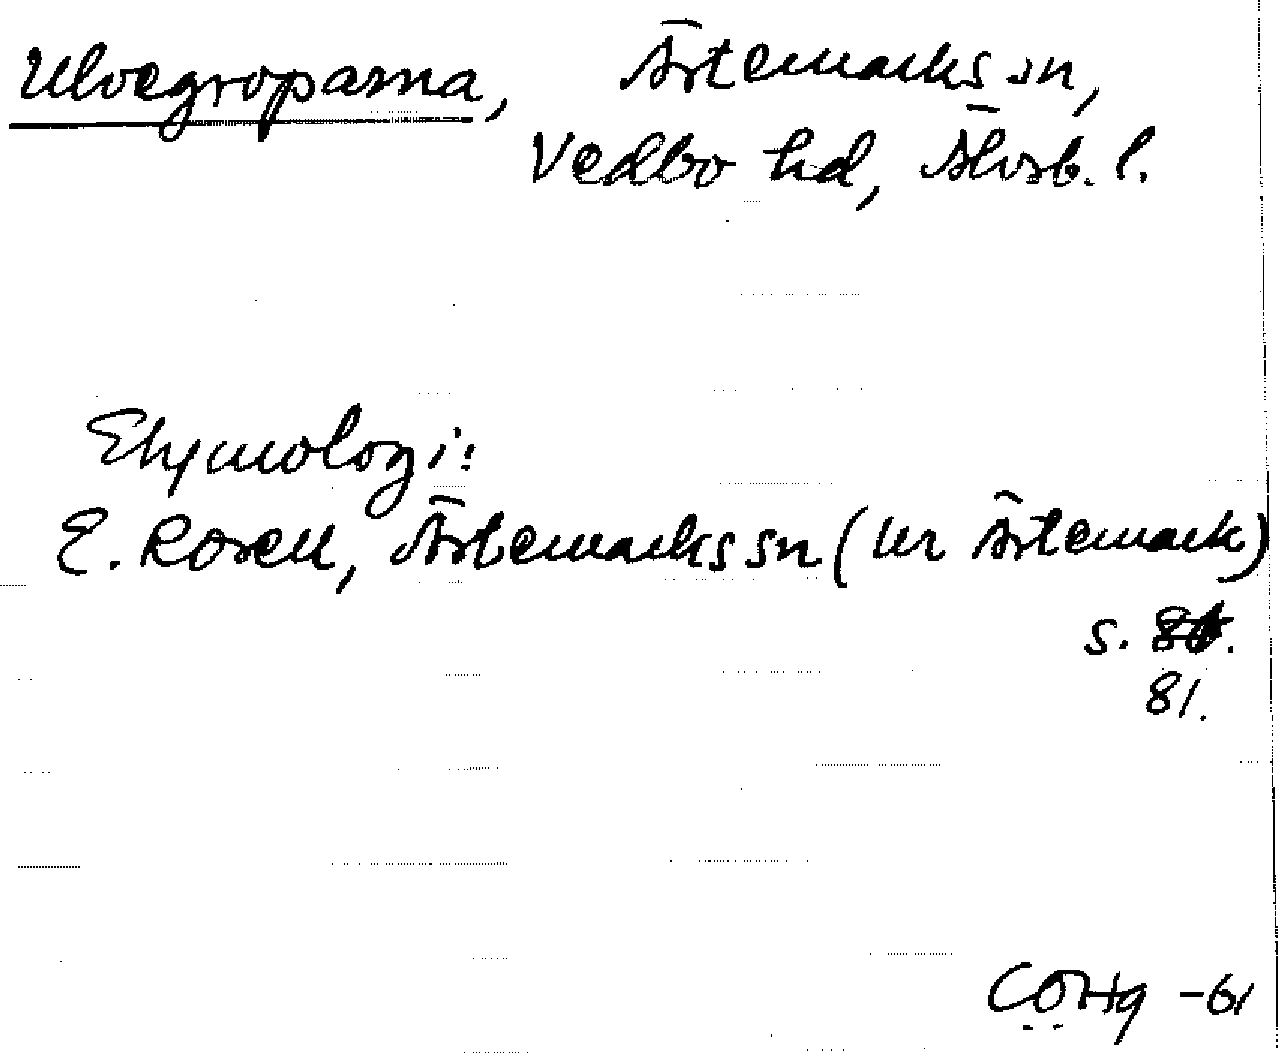 Ulvegroparna, Ärtemarks sn,
Vedbo hd, Älvsb. l.
Etymologi:
E. Rosell, Ärtemarks sn (ur Ärtemark)
s.
81.
-61